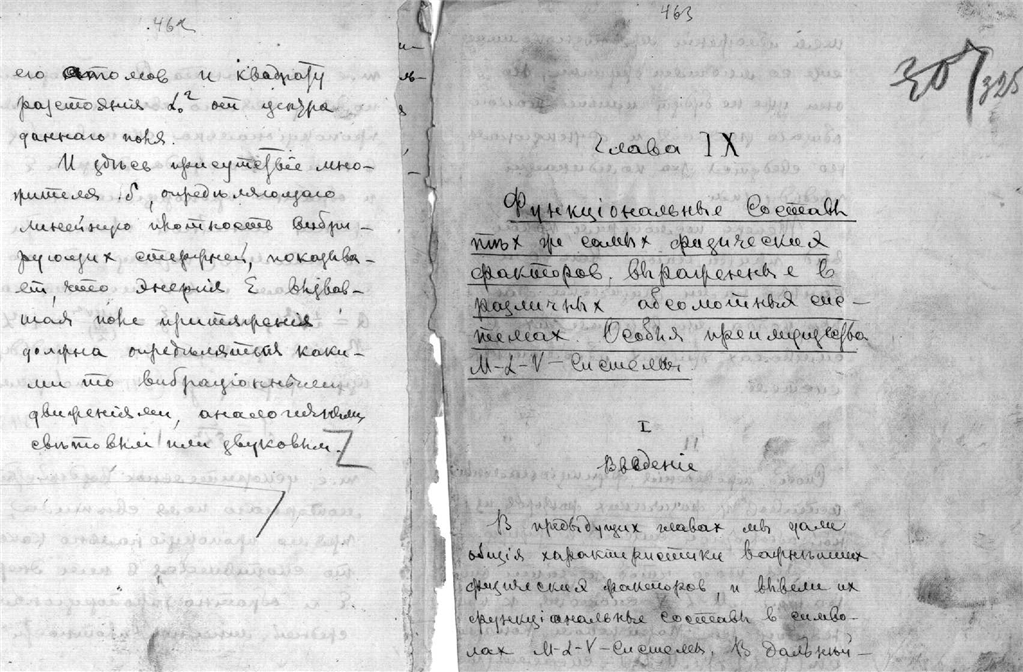 462
его атомовъ и квадрату
разстоянія L₀² от центра
даннаго поля.
И здѣсь присутствіе мно-
жителя δ, опредѣляющаго
линейную плотность вибри-
рующих стержней, показыва-
ет, что энергія E вызвав-
шая поле притяженія
должна опредѣляться каки-
ми то вибраціонными
движеніями, аналогичными
свѣтовым или звуковым.
463
307
325
Глава IX
Функціональные Составы
тѣх же самых физических
факторов, выраженные в
различных абсолютных сис-
темах. Особыя преимущества
M-L-V-Системы.
I
Введеніе
В предыдущих главах мы дали
общія характеристики важнѣйших
физических факторов, и вывели их
функціональные составы в симво-
лах M-L-V-Системы. В дальнѣй-